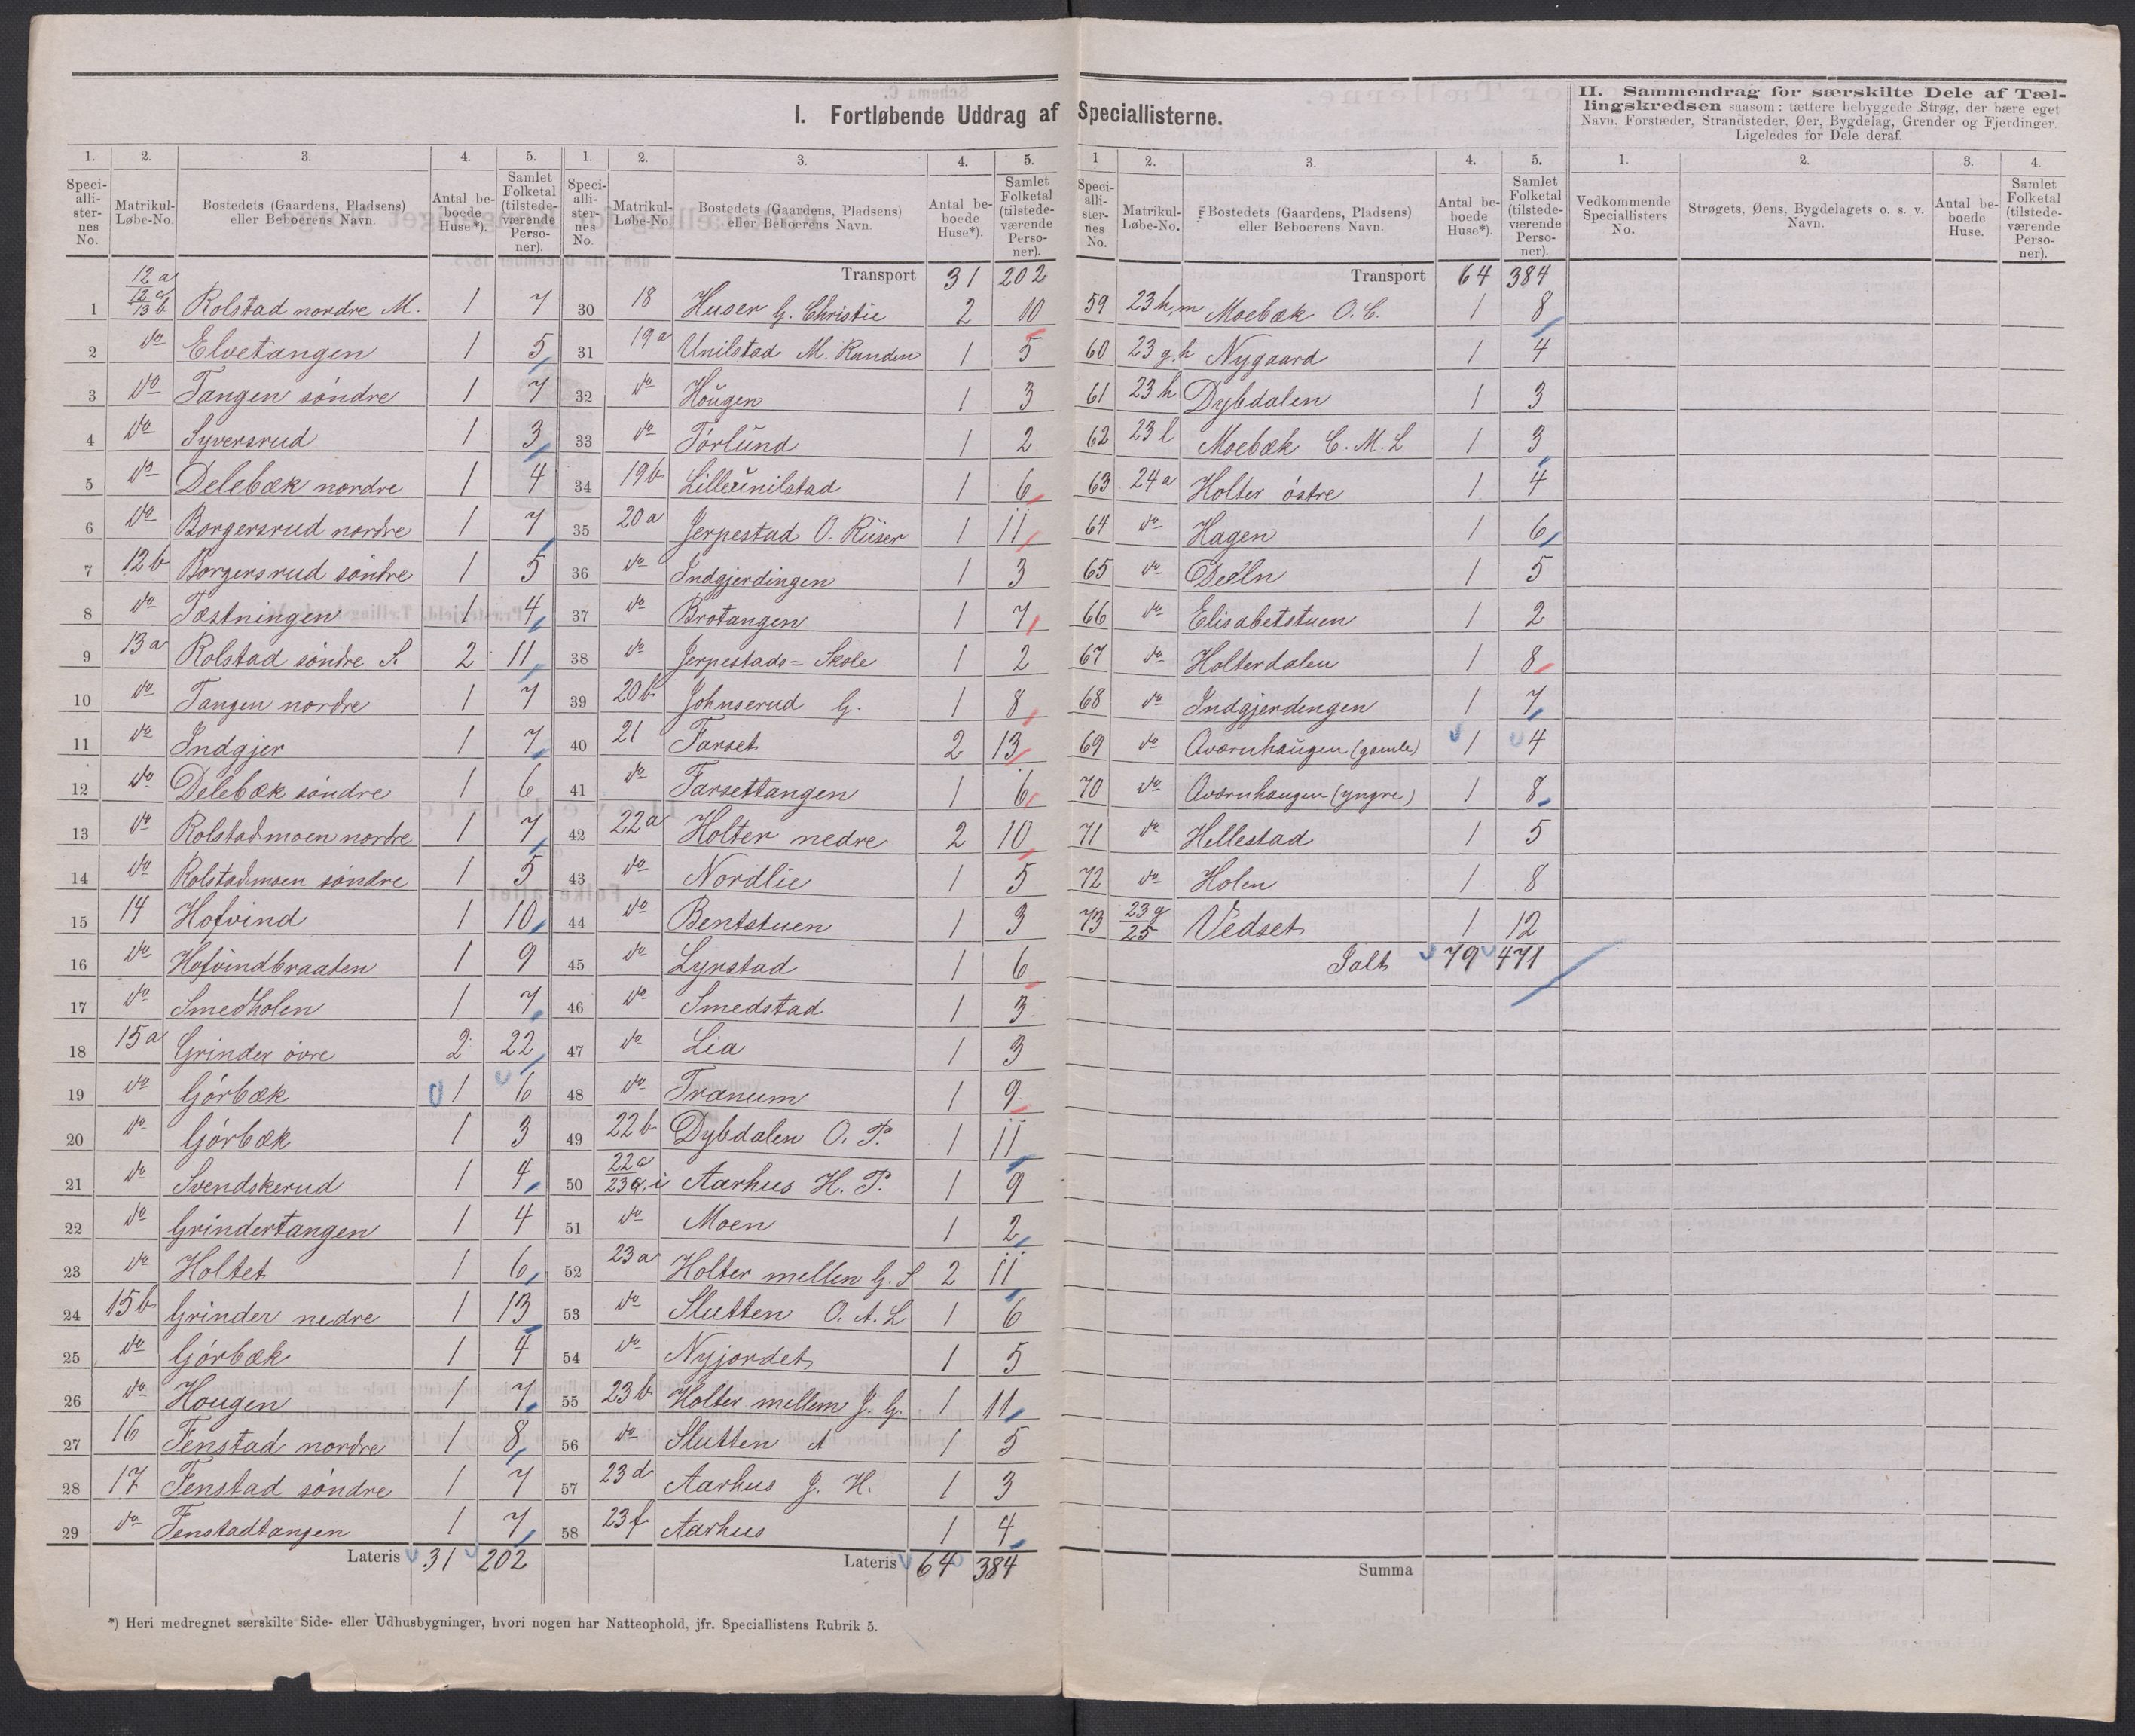 I. Fortløbende Uddrag af Speciallisterne.
II. Sammendrag for særskilte Dele af Tæl-
lingskredsen saasom: tættere bebyggede Strøg, der bære eget
Navn, Forstæder, Strandsteder, Øer, Bygdelag, Grender og Fjerdinger.
Ligeledes for Dele deraf.
1. 2. 3. 4. 5.
Speci-alli-ster-nes No. Matrikul-Løbe-No. Bostedets (Gaardens, Pladsens) eller Beboerens Navn. Antal be-boede Huse*). Samlet Folketal (tilstede-værende Perso-ner).
1 12a 12c 13b Rolstad nordre M. 1 7
2 do Elvetangen 1 5
3 do Tangen søndre 1 7
4 do Syversrud 1 3
5 do Delebæk nordre 1 4
6 do Borgersrud nordre 1 7
7 12b Borgersrud søndre 1 5
8 do Tæstningen 1 4
9 13a Rolstad søndre S. 2 11
10 do Tangen nordre 1 7
11 do Indgjer 1 7
12 do Delebæk søndre 1 6
13 do Rolstadmoen nordre 1 7
14 do Rolstadmoen søndre 1 5
15 14 Hofvind 1 10
16 do Hofvindbraaten 1 9
17 do Smedholen 1 7
18 15a Grinder øvre 2 22
19 do Gjørbæk 1 6
20 do Gjørbæk 1 3
21 do Svendskerud 1 4
22 do Grindertangen 1 4
23 do Holtet 1 6
24 15b Grinder nedre 1 13
25 do Gjørbæk 1 4
26 do Hougen 1 7
27 16 Fenstad nordre 1 8
28 17 Fenstad søndre 1 7
29 do Fenstadtangen 1 7
Lateris 31 202
*) Heri medregnet særskilte Side- eller Udhusbygninger, hvori nogen har Natteophold, jfr. Speciallistens Rubrik 5.
1. 2. 3. 4. 5.
Speci-alli-ster-nes No. Matrikul-Løbe-No. Bostedets (Gaardens, Pladsens) eller Beboerens Navn. Antal be-boede Huse*). Samlet Folketal (tilstede-værende Perso-ner).
Transport 31 202
30 18 Huser G. Christie 2 10
31 19a Unilstad M. Randen 1 5
32 do Hougen 1 3
33 do Tørlund 1 2
34 19b Lilleunilstad 1 6
35 20a Jerpestad O. Rüser 1 11
36 do Indgjerdingen 1 3
37 do Brotangen 1 7
38 do Jerpestads= Skole 1 2
39 20b Johnserud G. 1 8
40 21 Farset 2 13
41 do Farsettangen 1 6
42 22a Holter nedre 2 10
43 do Nordlie 1 5
44 do Bentstuen 1 3
45 do Lynstad 1 6
46 do Smedstad 1 3
47 do Lia 1 3
48 do Trænum 1 9
49 22b Dybdalen O. P. 1 11
50 22c 23c,i Aarhus H. P. 1 9
51 do Moen 1 2
52 23a Holter mellen G. S 2 11
53 do Slutten O. A. L 1 6
54 do Nyjordet 1 5
55 23b Holter mellem J. G. 1 11
56 do Slutten A 1 5
57 23d Aarhus J. H. 1 3
58 23f Aarhus 1 4
Lateris 64 384
1 2. 3. 4. 5.
Speci-alli-ster-nes No. Matrikul-Løbe-No. Bostedets (Gaardens, Pladsens) eller Beboerens Navn. Antal be-boede Huse*). Samlet Folketal (tilstede-værende Perso-ner).
Transport 64 384
59 23h,m Moebæk O. C. 1 8
60 23g.h Nygaard 1 4
61 23h Dybdalen 1 3
62 23l Moebæk C. M. L 1 3
63 24a Holter østre 1 4
64 do Hagen 1 6
65 do Deeln 1 5
66 do Elisabetstuen 1 2
67 do Holterdalen 1 8
68 do Indgjerdengen 1 7
69 do Aværnhaugen (gamle) 1 4
70 do Aværnhaugen (yngre) 1 8
71 do Hellestad 1 5
72 do Holen 1 8
73 23g 25 Vedset 1 12
Ialt 79 471
Summa
1. 2. 3. 4.
Vedkommende Speciallisters No. Strøgets, Øens, Bygdelagets o. s. v. Navn. Antal be-boede Huse. Samlet Folketal (tilstede-værende Perso-ner).